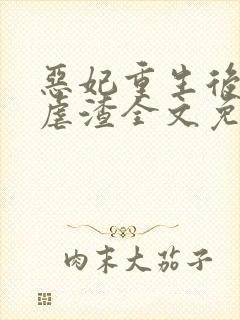 惡妃重生後
虐渣全文免
肉末大茄子